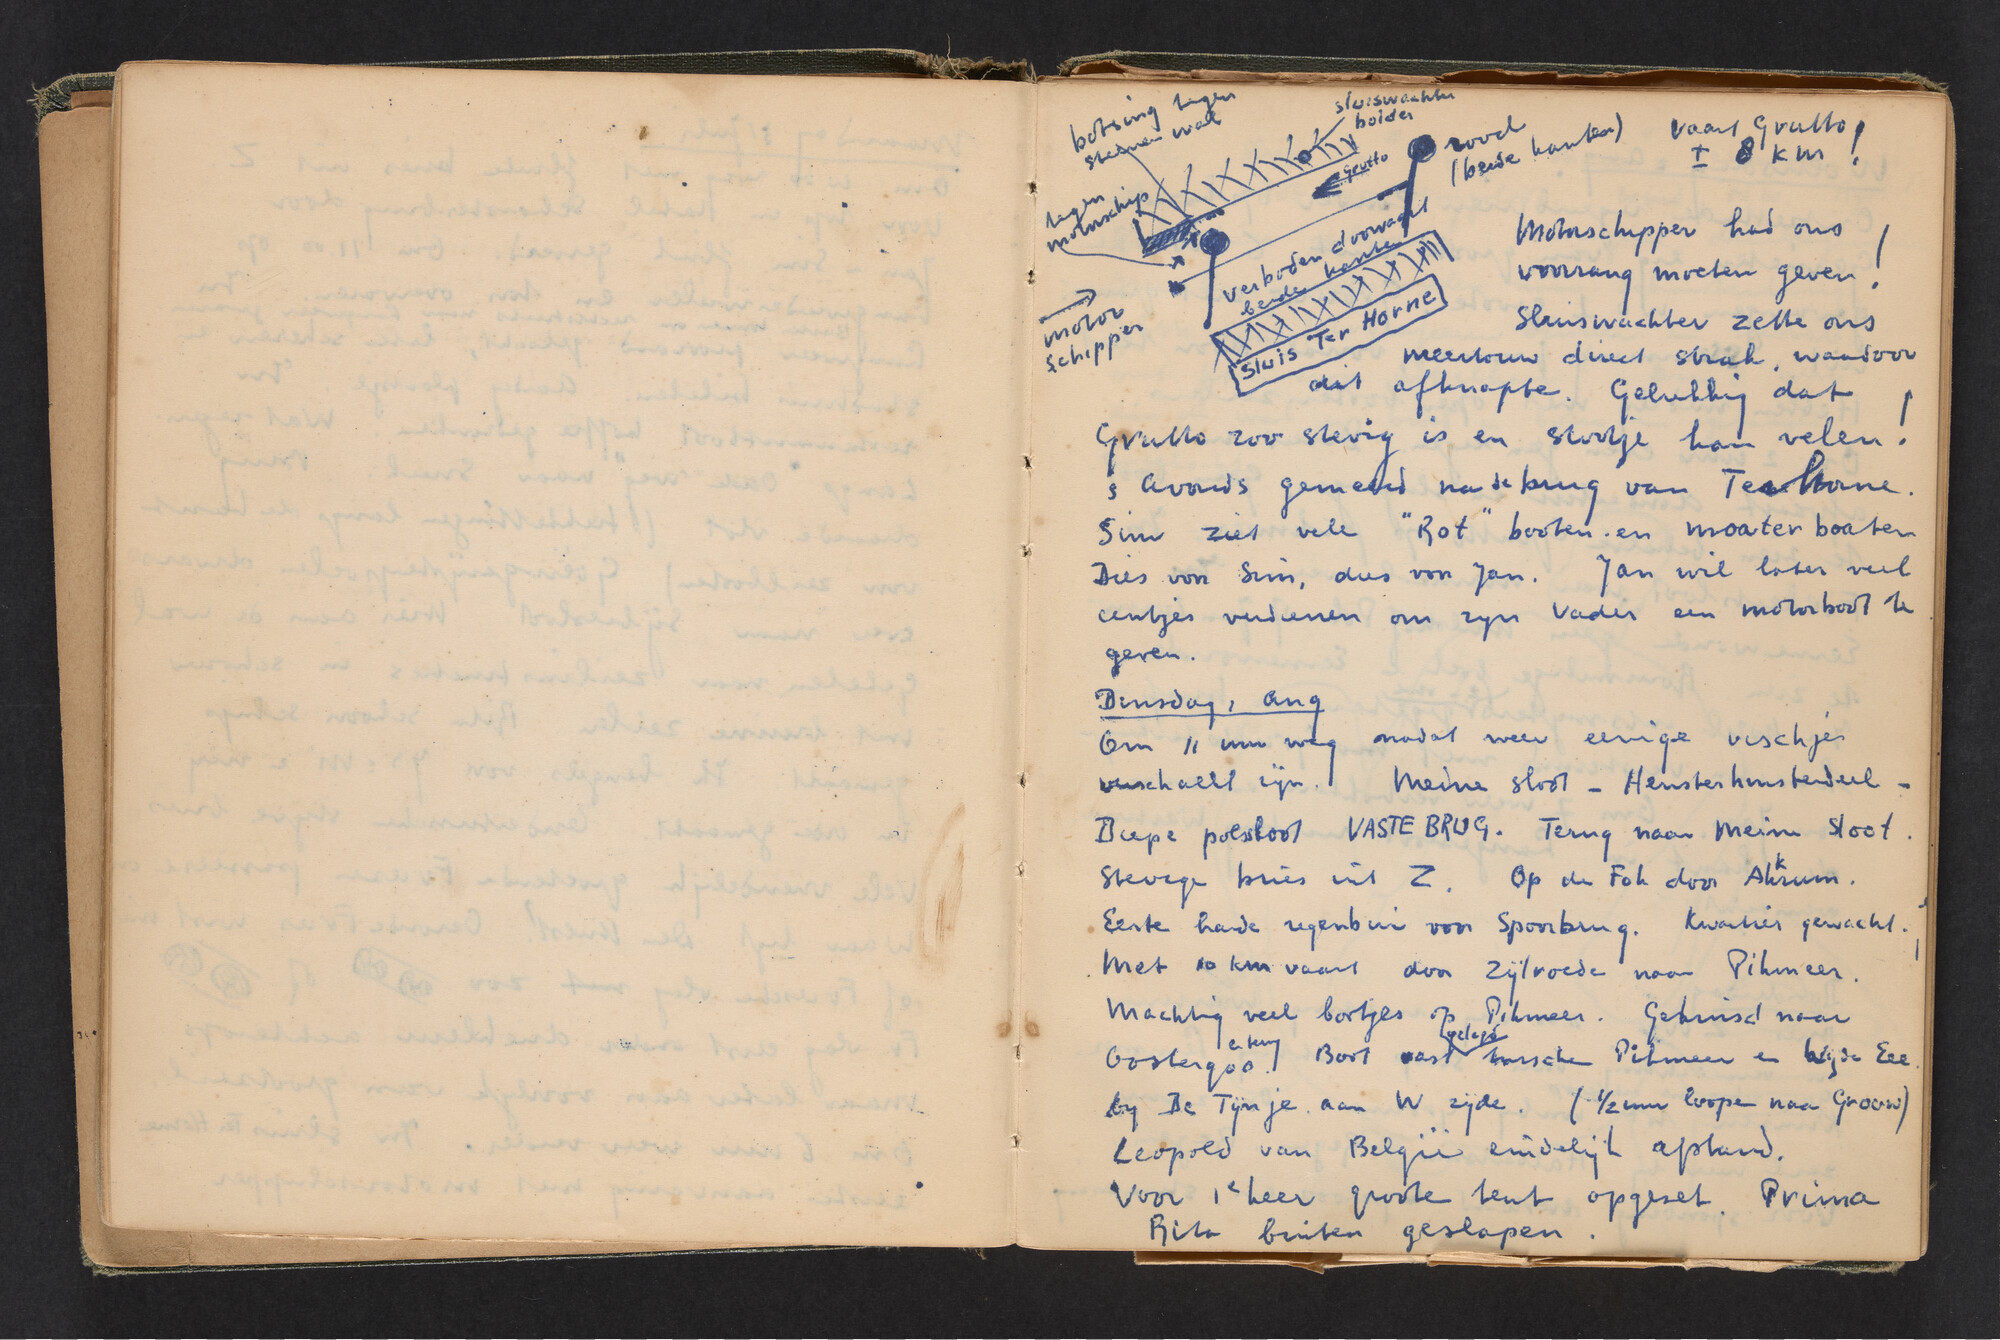 botsing tegen
steenen wal
sluiswachter
bolder
rood
(beide kanten)
Vaart Grutto!
± 8 km
Grutto
tegen
motorschip
verboden doorvaart
beide kanten
motor
schipper
Sluis Ter Horne
Motorschipper had ons
voorrang moeten geven!
Sluiswachter zette ons
meertouw direct strak, waardoor
dit afknapte. Gelukkig dat
Grutto zoo stevig is en stootje kan velen!
s Avonds gemeerd na de brug van Ter Horne.
Sim ziet vele "Rot" booten en moater boaten
Dies von Sim, dies von Jan. Jan wil later veel
centjes verdienen om zijn Vader een motorboot te
geven.
Dinsdag 1 Aug
Om 11 uur weg nadat weer eenige vischjes
verschalkt zijn. Meine sloot -
Diepe VASTE BRUG. Terug naar Meine Sloot.
Stevige bries uit Z. Op de Fok door Akkrum.
k
Eerste harde regenbui voor Spoorbrug. Kwartier gewacht.
Met 10 km vaart door Zijlroede naar Pikmeer.
Machtig veel bootjes op Pikmeer. Gekruisd naar
Oostergoo. Boot vast tusschen Pikmeer en Wijde Eee
en terug
gelegd
by De Tijnje aan W zijde. (1/2 uur loopen naar Grouw)
Leopold van België eindelijk afstand.
Voor 1e keer groote tent opgeset. Prima
Rita buiten geslapen.